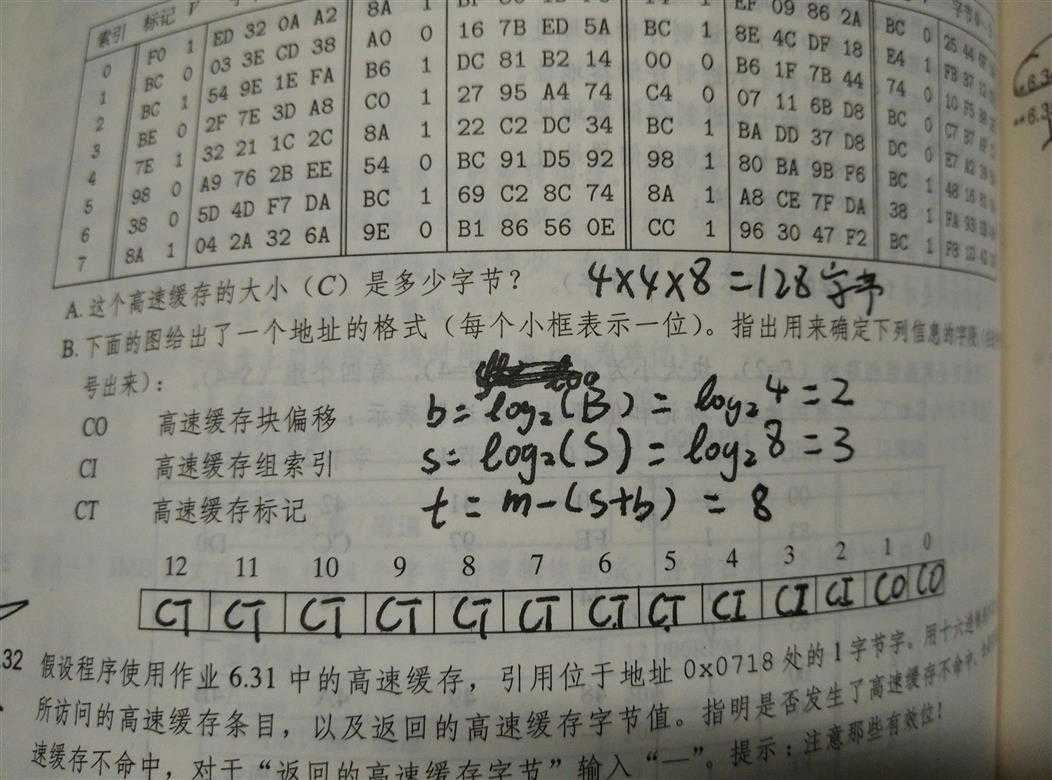 索引 标记 V 字节0-
0 F0 1 ED 32 0A A2 8A 1 1 EF 09 86 2A BC 0
1 BC 0 03 3E CD 38 A0 0 16 7B ED 5A BC 1 8E 4C DF 18 E4 1
2 BC 1 54 9E 1E FA B6 1 DC 81 B2 14 00 0 B6 1F 7B 44 74 0
3 BE 0 2F 7E 3D A8 C0 1 27 95 A4 74 C4 0 07 11 6B D8 BC 0
4 7E 1 32 21 1C 2C 8A 1 22 C2 DC 34 BC 1 BA DD 37 D8 DC 0
5 98 0 A9 76 2B EE 54 0 BC 91 D5 92 98 1 80 BA 9B F6 BC 1
6 38 0 5D 4D F7 DA BC 1 69 C2 8C 74 8A 1 A8 CE 7F DA 38 1
7 8A 1 04 2A 32 6A 9E 0 B1 86 56 0E CC 1 96 30 47 F2 BC 1
A. 这个高速缓存的大小(C)是多少字节? 4×4×8=128字节
B. 下面的图给出了一个地址的格式(每个小框表示一位)。指出用来确定下列信息的字段
号出来):
CO 高速缓存块偏移 b=log₂(B)=log₂4=2
CI 高速缓存组索引 s=log₂(S)=log₂8=3
CT 高速缓存标记 t=m-(s+b)=8
12 11 10 9 8 7 6 5 4 3 2 1 0
CT CT CT CT CT CT CT CT CI CI CI CO CO
.32 假设程序使用作业 6.31 中的高速缓存,引用位于地址 0x0718 处的 1 字节字。用十六进
所访问的高速缓存条目,以及返回的高速缓存字节值。指明是否发生了高速缓存不命中。
速缓存不命中,对于“返回的高速缓存字节”输入“—”。提示:注意那些有效位!